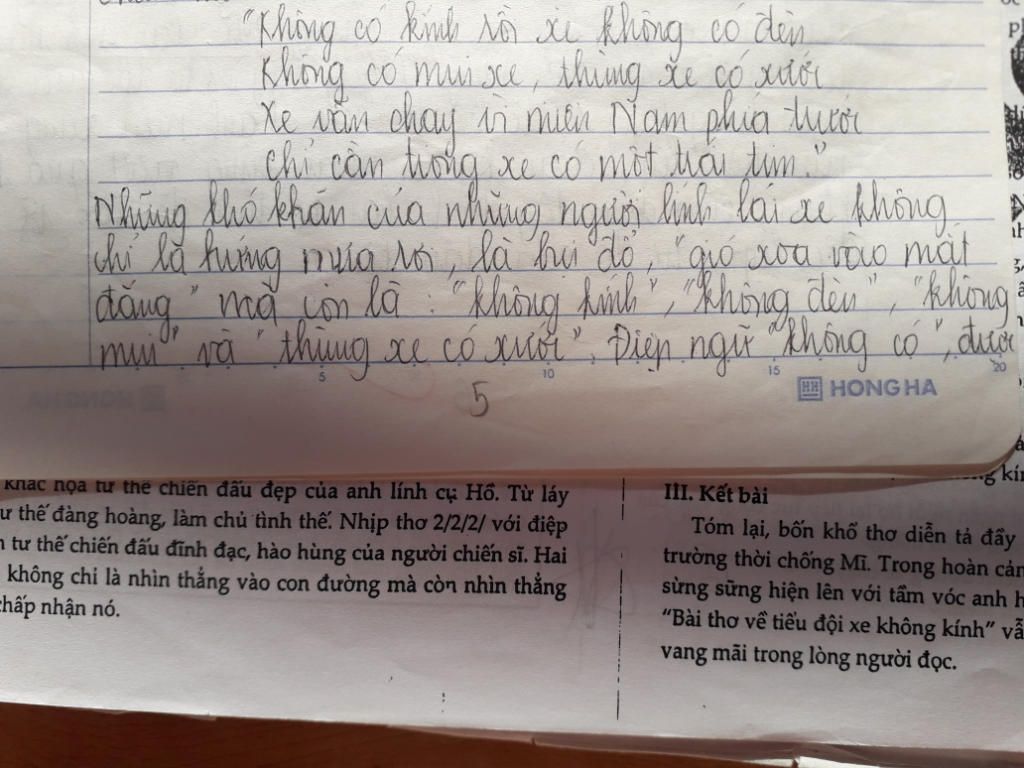 "Không có kính rồi xe không có đèn
Không có mui xe, thùng xe có xước
Xe vẫn chạy vì miền Nam phía trước
Chỉ cần trong xe có một trái tim."
Những khó khăn của những người lính lái xe không
chỉ là tướng mưa rơi, là bụi đỏ, "gió xoa vào mắt
đắng" mà còn là: "không kính", "không đèn", "không
mui" và "thùng xe có xước". Điệp ngữ "không có", được
5 10 15 20
5
HONG HA
khắc họa tư thế chiến đấu đẹp của anh lính cụ Hồ. Từ láy
ư thế đàng hoàng, làm chủ tình thế. Nhịp thơ 2/2/2/ với điệp
tư thế chiến đấu đĩnh đạc, hào hùng của người chiến sĩ. Hai
không chỉ là nhìn thẳng vào con đường mà còn nhìn thẳng
chấp nhận nó.
III. Kết bài
Tóm lại, bốn khổ thơ diễn tả đầy
trường thời chống Mĩ. Trong hoàn cản
sừng sững hiện lên với tầm vóc anh h
"Bài thơ về tiểu đội xe không kính" vẫ
vang mãi trong lòng người đọc.